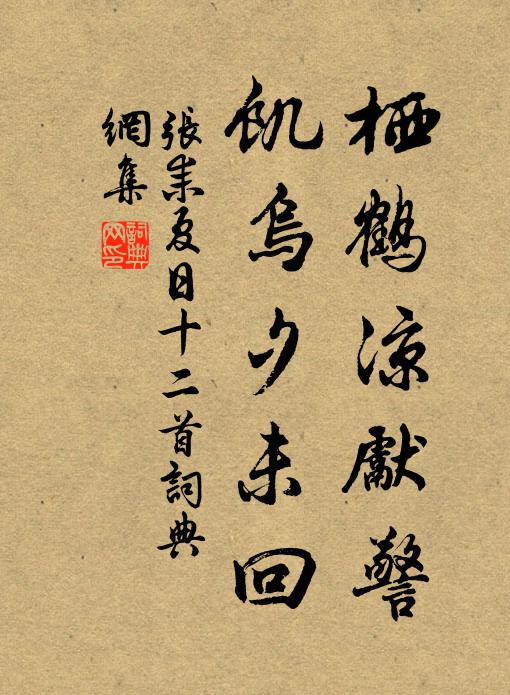 栖鶴凉獻警
飢烏夕未回
張耒夏日十二首詞典
網集
詞典
网印